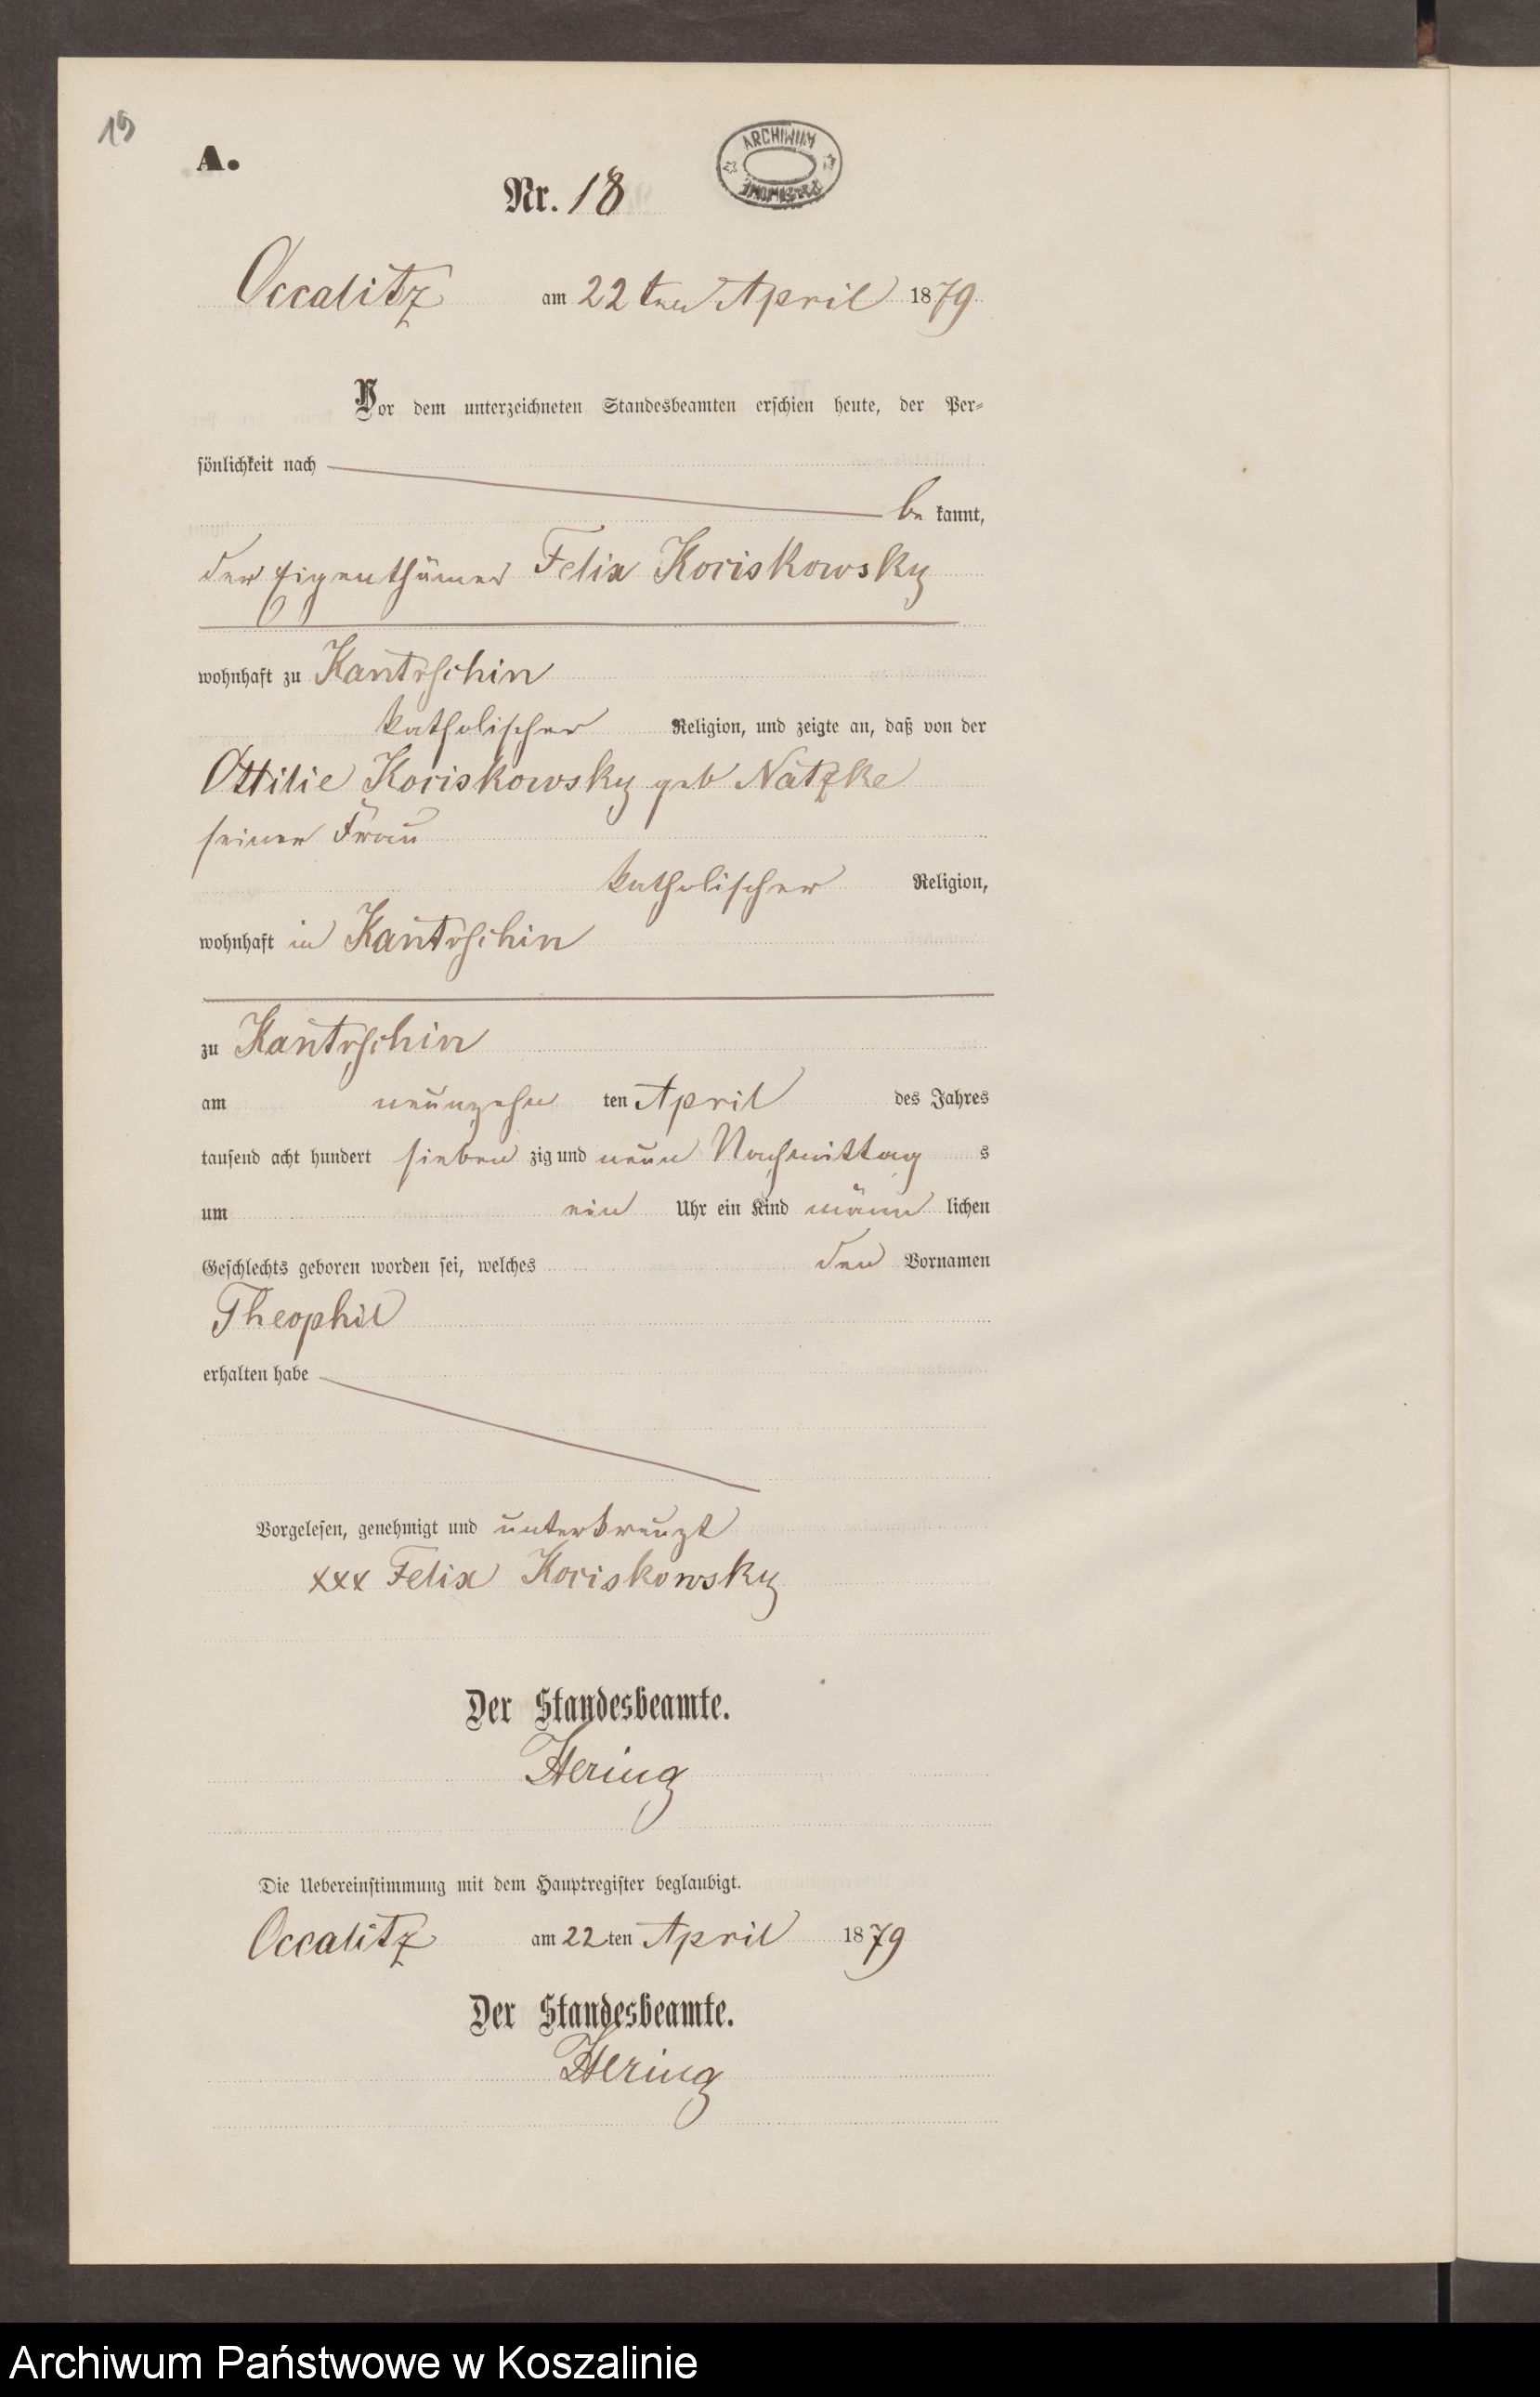 19
A.
ARCHIWUM
Nr. 18
Occalitz am 22ten April 1879
Vor dem unterzeichneten Standesbeamten erschien heute, der Per-
sönlichkeit nach
be kannt,
der Eigenthümer Felix Koriskowsky
wohnhaft zu Kantrschin
katholischer Religion, und zeigte an, daß von der
Ottilie Koriskowsky geb Natzke
seiner Frau
katholischer Religion,
wohnhaft in Kantrschin
zu Kantrschin
am neunzehn ten April des Jahres
tausend acht hundert sieben zig und neun Nachmittag s
um ein Uhr ein Kind männ lichen
Geschlechts geboren worden sei, welches den Vornamen
Theophil
erhalten habe
Vorgelesen, genehmigt und unterkreuzt
xxx Felix Koriskowsky
Der Standesbeamte.
Hering
Die Uebereinstimmung mit dem Hauptregister beglaubigt.
Occalitz am 22 ten April 1879
Der Standesbeamte.
Hering
Archiwum Państwowe w Koszalinie